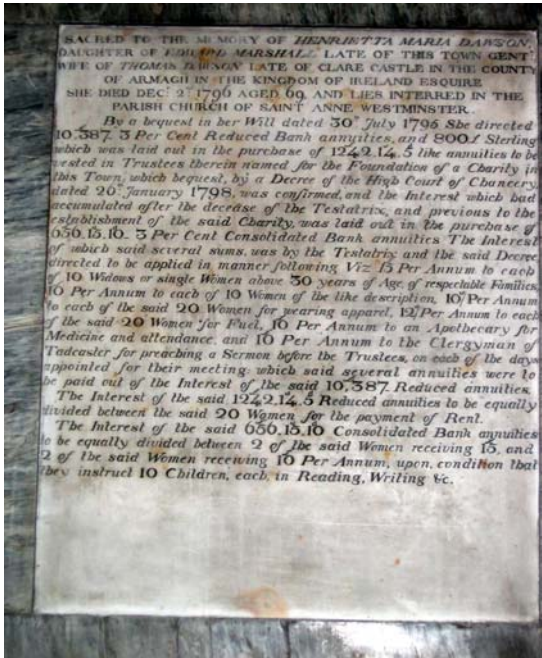 SACRED TO THE MEMORY OF HENRIETTA MARIA DAWSON,
DAUGHTER OF EDWARD MARSHALL LATE OF THIS TOWN GENT.
WIFE OF THOMAS DAWSON LATE OF CLARE CASTLE IN THE COUNTY
OF ARMAGH IN THE KINGDOM OF IRELAND ESQUIRE
SHE DIED DEC.R 2.D 1796 AGED 69, AND LIES INTERRED IN THE
PARISH CHURCH OF SAINT ANNE WESTMINSTER.
By a bequest in her Will dated 30th July 1795 She directed
10.387. 3 Per Cent Reduced Bank annuities, and 800£ Sterling
which was laid out in the purchase of 1242.14.5 like annuities to be
vested in Trustees therein named for the Foundation of a Charity in
this Town, which bequest, by a Decree of the High Court of Chancery,
dated 20th January 1798, was confirmed, and the Interest which had
accumulated after the decease of the Testatrix, and previous to the
establishment of the said Charity, was laid out in the purchase of
656.15.10. 3 Per Cent Consolidated Bank annuities The Interest
of which said several sums, was by the Testatrix and the said Decree
directed to be applied in manner following Viz 15 Per Annum to each
of 10 Widows or single Women above 50 years of Age, of respectable Families,
10 Per Annum to each of 10 Women of the like description, 10/ Per Annum
to each of the said 20 Women for wearing apparel, 12/ Per Annum to each
of the said 20 Women for Fuel, 10 Per Annum to an Apothecary for
Medicine and attendance, and 10 Per Annum to the Clergyman of
Tadcaster for preaching a Sermon before the Trustees, on each of the days
appointed for their meeting: which said several annuities were to
be paid out of the Interest of the said 10.387 Reduced annuities.
The Interest of the said 1242.14.5 Reduced annuities to be equally
divided between the said 20 Women for the payment of Rent.
The Interest of the said 656.15.10 Consolidated Bank annuities
to be equally divided between 2 of the said Women receiving 15, and
2 of the said Women receiving 10 Per Annum, upon, condition that
they instruct 10 Children, each, in Reading, Writing &c.